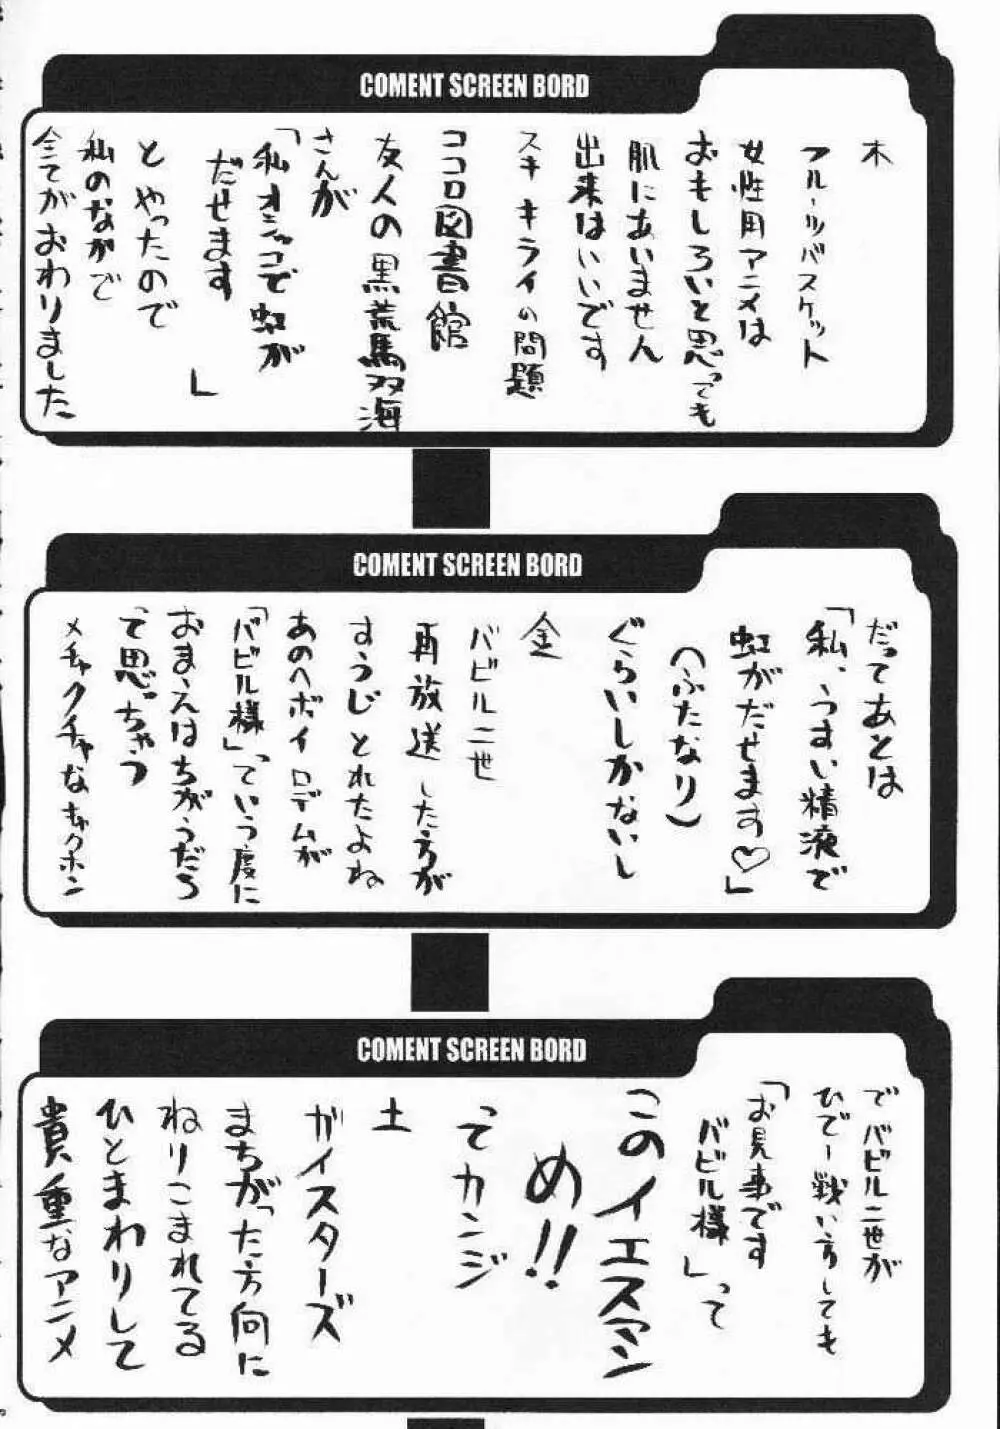 COMENT SCREEN BORD
木
フルーツバスケット
女性用アニメは
おもしろいと思っても
肌にあいません
出来はいいです
スキキライの問題
ココロ図書館
友人の黒荒馬双海
さんが
「私オシッコで虹が
だせます
」
とやったので
私のなかで
全てがおわりました
COMENT SCREEN BORD
だってあとは
「私、うすい精液で
虹がだせます♡」
(ふたなり)
ぐらいしかないし
金
バビル二世
再放送した方が
すうじとれたよね
あのヘボイロデムが
「バビル様」っていう度に
おまえはちがうだろ
って思っちゃう
メチャクチャなキャクホン
COMENT SCREEN BORD
でバビル二世が
ひでー戦い方しても
「お見事です
バビル様」って
このイエスマン
め!!
ってカンジ
土
ガイスターズ
まちがった方向に
ねりこまれてる
ひとまわりして
貴重なアニメ